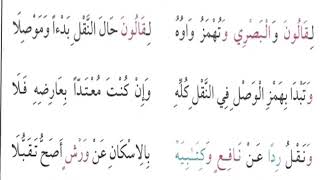 لِقَالُونَ وَالْبَصْرِي وَتُهْمَزُ وَاوُهُ لِقَالُونَ حَالَ النَّقْلِ بَدْءاً وَمَوْصِلَا
وَتَبْدَا بِهَمْزِ الْوَصْلِ فِي النَّقْلِ كُلِّهِ وَإِنْ كُنْتَ مُعْتَدّاً بِعَارِضِهِ فَلَا
وَنَقْلُ رِدًا عَنْ نَافِعٍ وَكِتَـٰبِيَهْ بِالِاسْكَانِ عَنْ وَرْشٍ أَصَحُّ تَقَبُّلَا